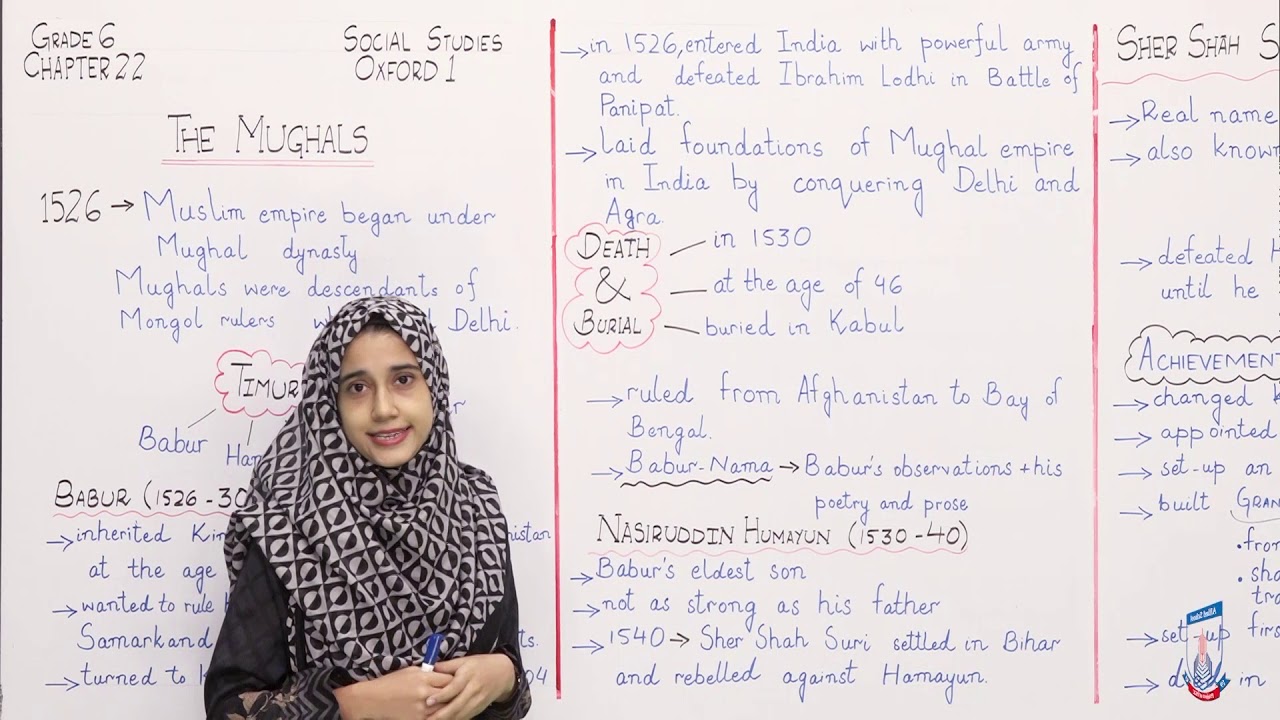 GRADE 6
CHAPTER 22
SOCIAL STUDIES
OXFORD 1
THE MUGHALS
1526 → Muslim empire began under
Mughal dynasty
Mughals were descendants of
Mongol rulers Delhi.
TIMUR
Babur
BABUR (1526 - 30
→ inherited
at the age
→ wanted to rule
Samarkand
→ turned to
04
→ in 1526, entered India with powerful army
and defeated Ibrahim Lodhi in Battle of
Panipat.
→ laid foundations of Mughal empire
in India by conquering Delhi and
Agra.
DEATH & BURIAL
in 1530
at the age of 46
buried in Kabul
→ ruled from Afghanistan to Bay of
Bengal.
→ Babur-Nama → Babur's observations + his
poetry and prose
NASIRUDDIN HUMAYUN (1530 - 40)
→ Babur's eldest son
→ not as strong as his father
→ 1540 → Sher Shah Suri settled in Bihar
and rebelled against Hamayun.
SHER SHAH S
→ Real name
→ also known
→ defeated H
until he
ACHIEVEMENT
→ changed
→ appointed
→ set-up an
→ built GRAN
• from
• sha
tra
→ set-up firs
→ in